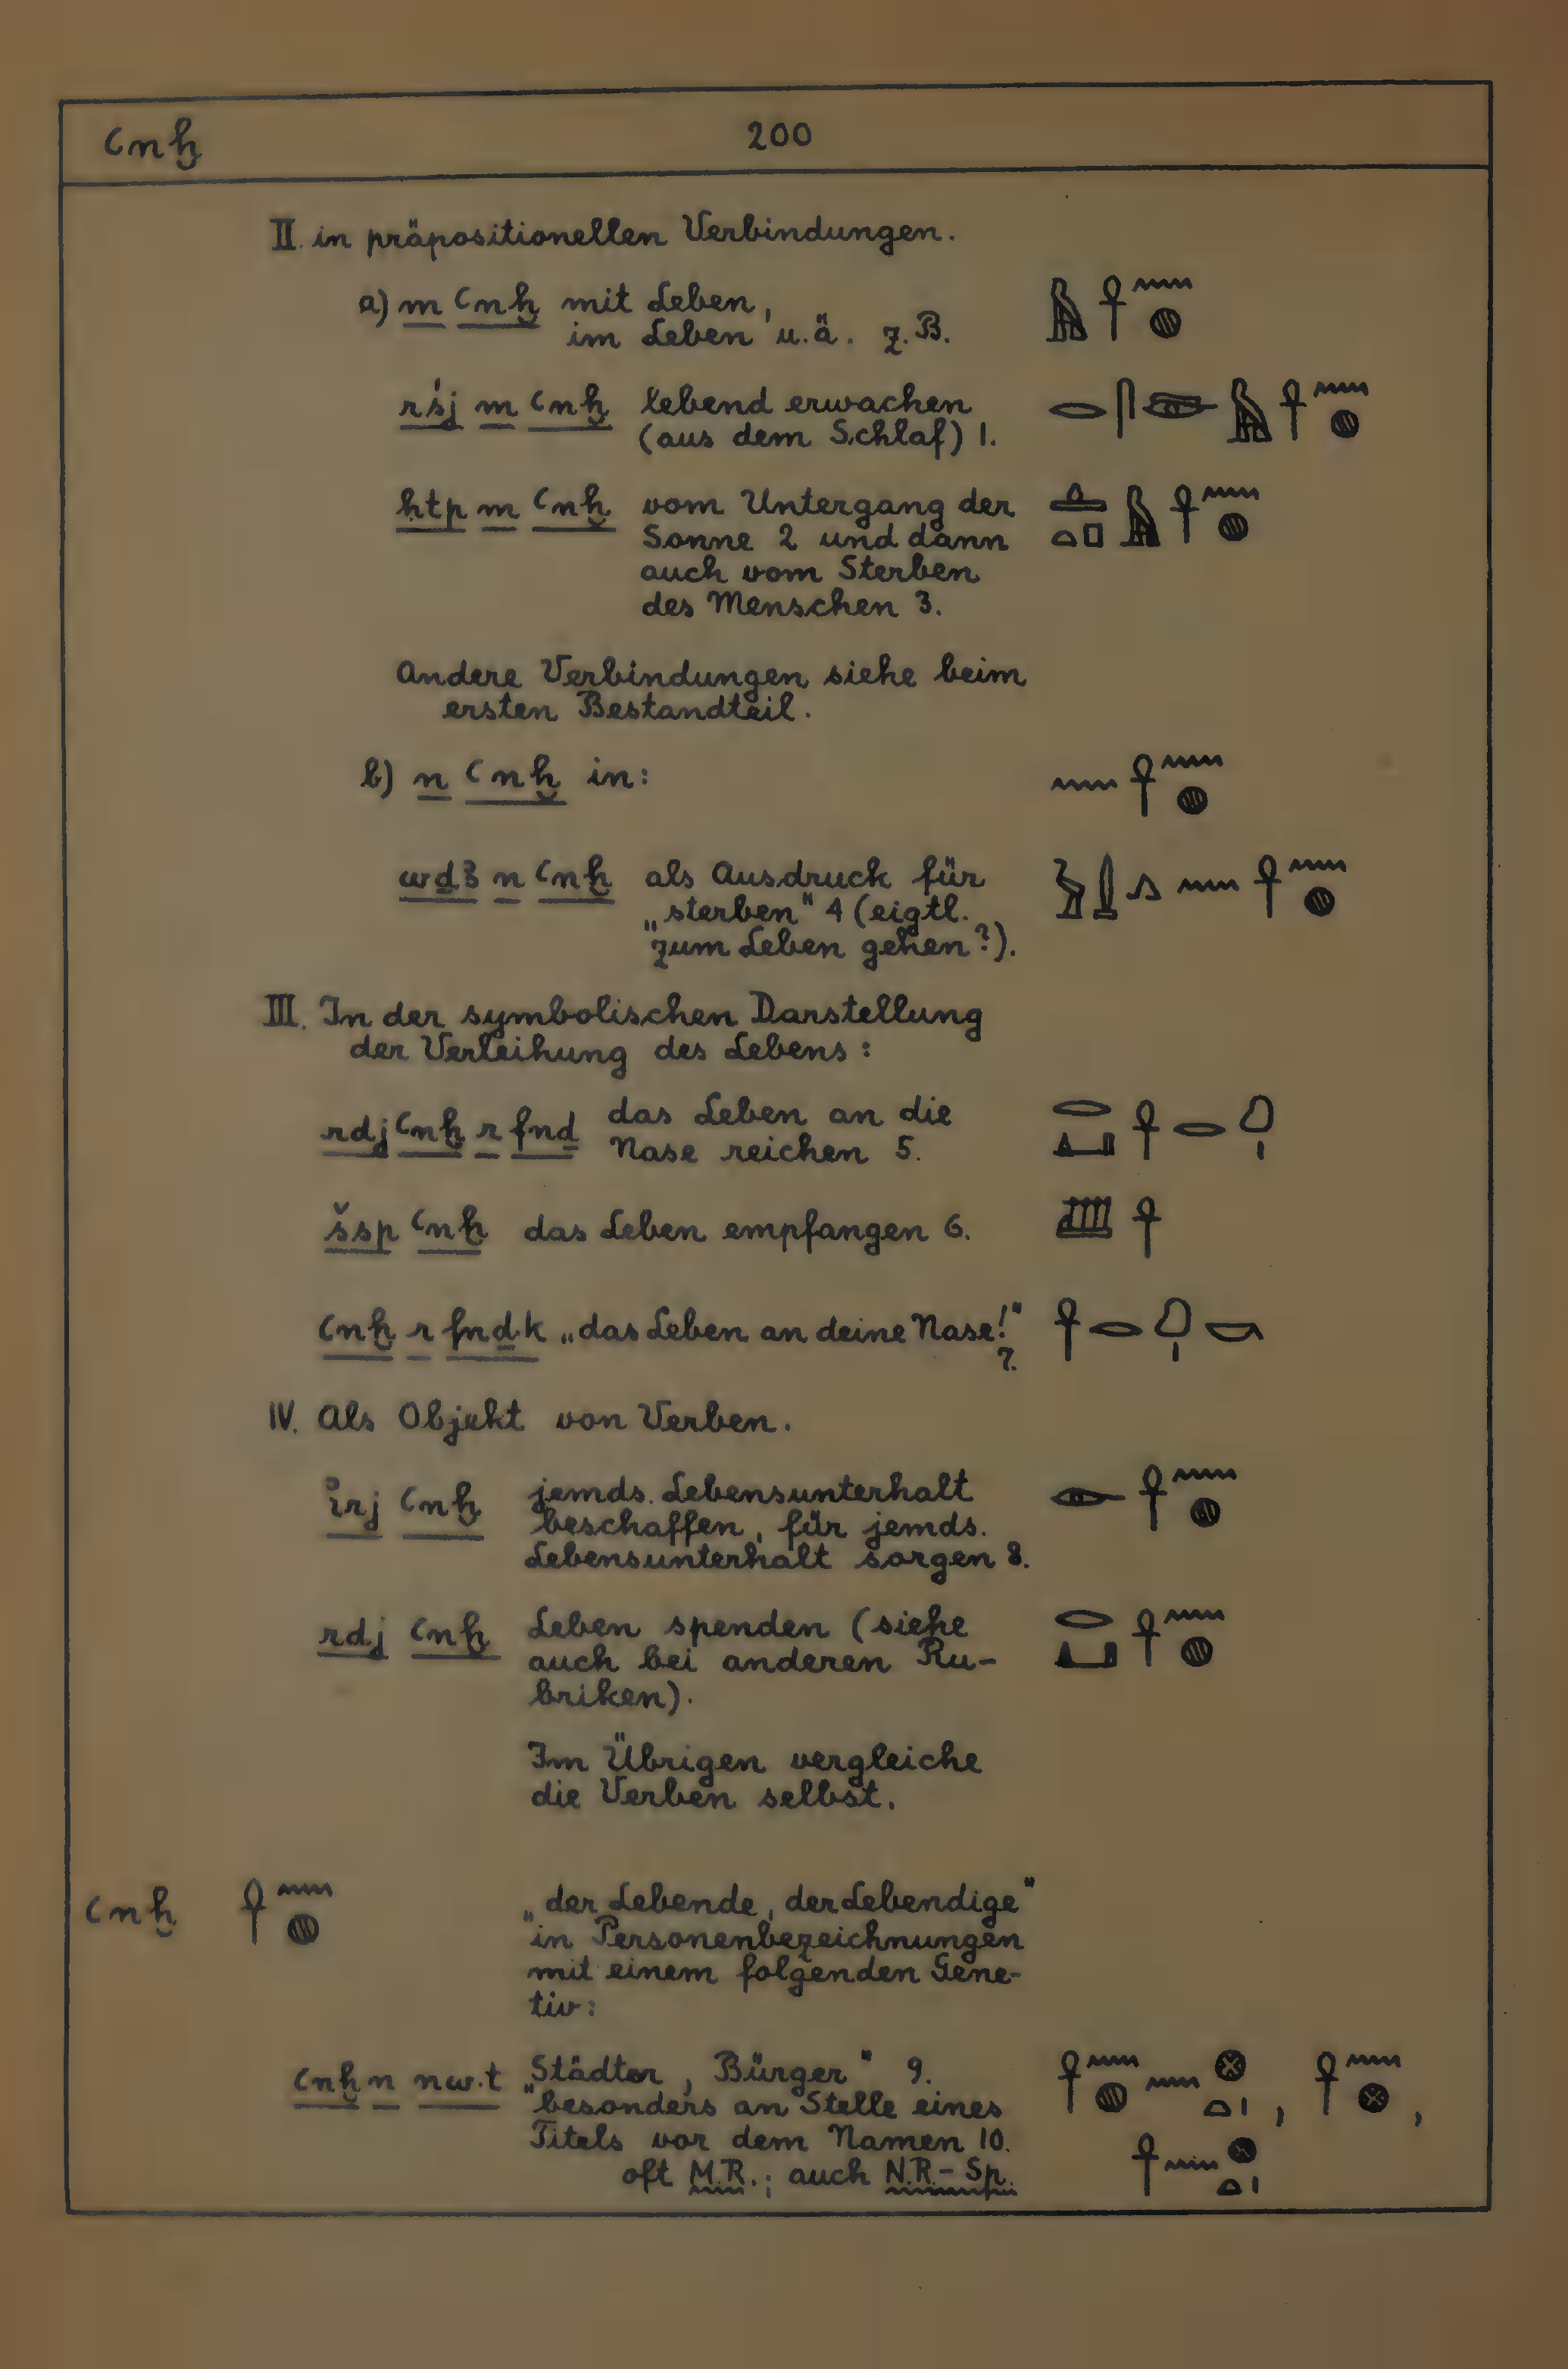 ꜥnḫ 200
II. in präpositionellen Verbindungen.
a) m ꜥnḫ mit Leben, 𓅓𓋹𓈖𓐍
im Leben u.ä. z.B.
rśj m ꜥnḫ lebend erwachen 𓂋𓋴𓅓𓋹𓈖𓐍
(aus dem Schlaf) 1.
ḥtp m ꜥnḫ vom Untergang der 𓊵𓏏𓊪𓅓𓋹𓈖𓐍
Sonne 2 und dann
auch vom Sterben
des Menschen 3.
Andere Verbindungen siehe beim
ersten Bestandteil.
b) n ꜥnḫ in: 𓈖𓋹𓈖𓐍
wḏꜣ n ꜥnḫ als Ausdruck für 𓅱𓍑𓂻𓈖𓋹𓈖𓐍
„sterben" 4 (eigtl.
zum Leben gehen?).
III. In der symbolischen Darstellung
der Verleihung des Lebens:
rdj ꜥnḫ r fnḏ das Leben an die 𓂋𓂞𓋹𓂋𓂉𓏤
Nase reichen 5.
šsp ꜥnḫ das Leben empfangen 6. 𓋹
ꜥnḫ r fnḏ.k „das Leben an deine Nase!" 𓋹𓂋𓂉𓏤𓎡
7.
IV. Als Objekt von Verben.
ꞽrj ꜥnḫ jemds. Lebensunterhalt 𓁹𓋹𓈖𓐍
beschaffen, für jemds.
Lebensunterhalt sorgen 8.
rdj ꜥnḫ Leben spenden (siehe 𓂋𓂞𓋹𓈖𓐍
auch bei anderen Ru-
briken).
Im Übrigen vergleiche
die Verben selbst.
ꜥnḫ 𓋹𓈖𓐍 „der Lebende, der Lebendige"
in Personenbezeichnungen
mit einem folgenden Gene-
tiv:
ꜥnḫ n nw.t „Städter, Bürger" 9. 𓋹𓈖𓐍𓈖𓊖𓏏𓏤, 𓋹𓈖𓊖,
besonders an Stelle eines
Titels vor dem Namen 10. 𓋹𓈖𓊖𓏏𓏤
oft M.R.; auch N.R.-Sp.